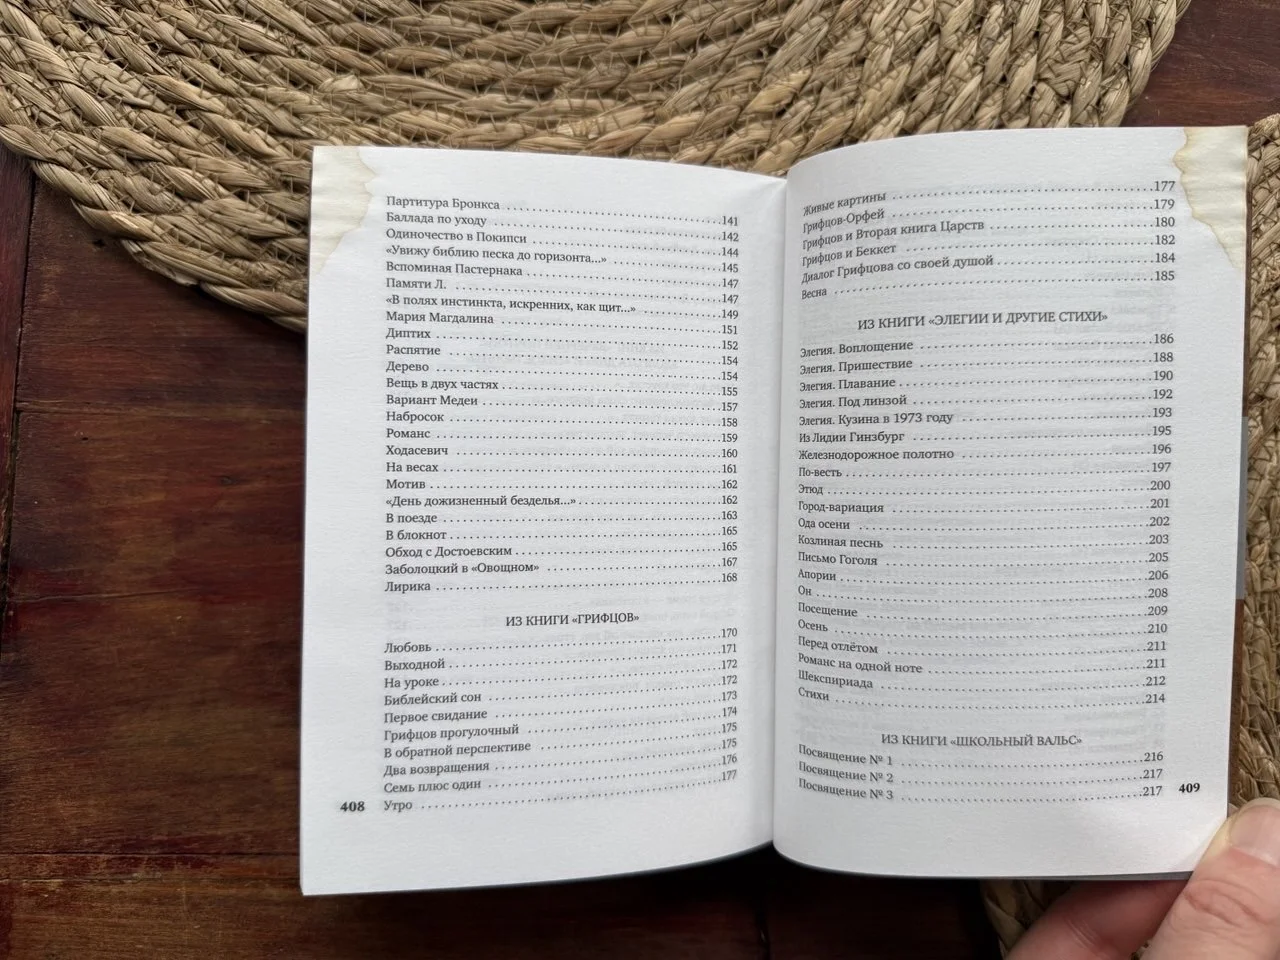 Партитура Бронкса ........ 141
Баллада по уходу ........ 142
Одиночество в Покипси ........ 144
«Увижу библию песка до горизонта...» ........ 145
Вспоминая Пастернака ........ 147
Памяти Л. ........ 147
«В полях инстинкта, искренних, как щит...» ........ 149
Мария Магдалина ........ 151
Диптих ........ 152
Распятие ........ 154
Дерево ........ 154
Вещь в двух частях ........ 155
Вариант Медеи ........ 157
Набросок ........ 158
Романс ........ 159
Ходасевич ........ 160
На весах ........ 161
Мотив ........ 162
«День дожизненный безделья...» ........ 162
В поезде ........ 163
В блокнот ........ 165
Обход с Достоевским ........ 165
Заболоцкий в «Овощном» ........ 167
Лирика ........ 168
ИЗ КНИГИ «ГРИФЦОВ»
Любовь ........ 170
Выходной ........ 171
На уроке ........ 172
Библейский сон ........ 172
Первое свидание ........ 173
Грифцов прогулочный ........ 174
В обратной перспективе ........ 175
Два возвращения ........ 175
Семь плюс один ........ 176
Утро ........ 177
408
Живые картины ........ 177
Грифцов-Орфей ........ 179
Грифцов и Вторая книга Царств ........ 180
Грифцов и Беккет ........ 182
Диалог Грифцова со своей душой ........ 184
Весна ........ 185
ИЗ КНИГИ «ЭЛЕГИИ И ДРУГИЕ СТИХИ»
Элегия. Воплощение ........ 186
Элегия. Пришествие ........ 188
Элегия. Плавание ........ 190
Элегия. Под линзой ........ 192
Элегия. Кузина в 1973 году ........ 193
Из Лидии Гинзбург ........ 195
Железнодорожное полотно ........ 196
По-весть ........ 197
Этюд ........ 200
Город-вариация ........ 201
Ода осени ........ 202
Козлиная песнь ........ 203
Письмо Гоголя ........ 205
Апории ........ 206
Он ........ 208
Посещение ........ 209
Осень ........ 210
Перед отлётом ........ 211
Романс на одной ноте ........ 211
Шекспириада ........ 212
Стихи ........ 214
ИЗ КНИГИ «ШКОЛЬНЫЙ ВАЛЬС»
Посвящение № 1 ........ 216
Посвящение № 2 ........ 217
Посвящение № 3 ........ 217
409